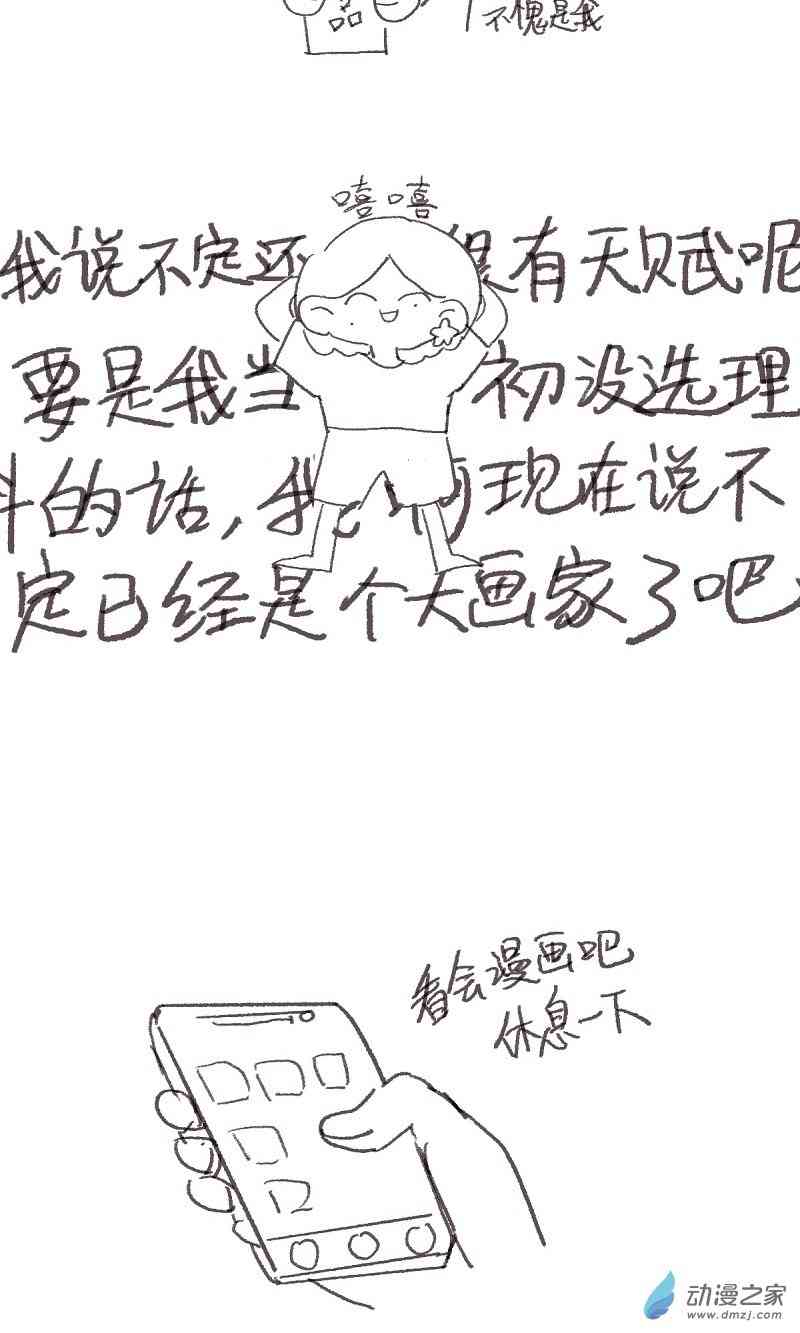 不愧是我
嘻嘻
我说不定还 很有天赋呢
要是我当初没选理
科的话,我 现在说不
定已经是个大画家了吧
看会漫画吧
休息一下
动漫之家
www.dmzj.com